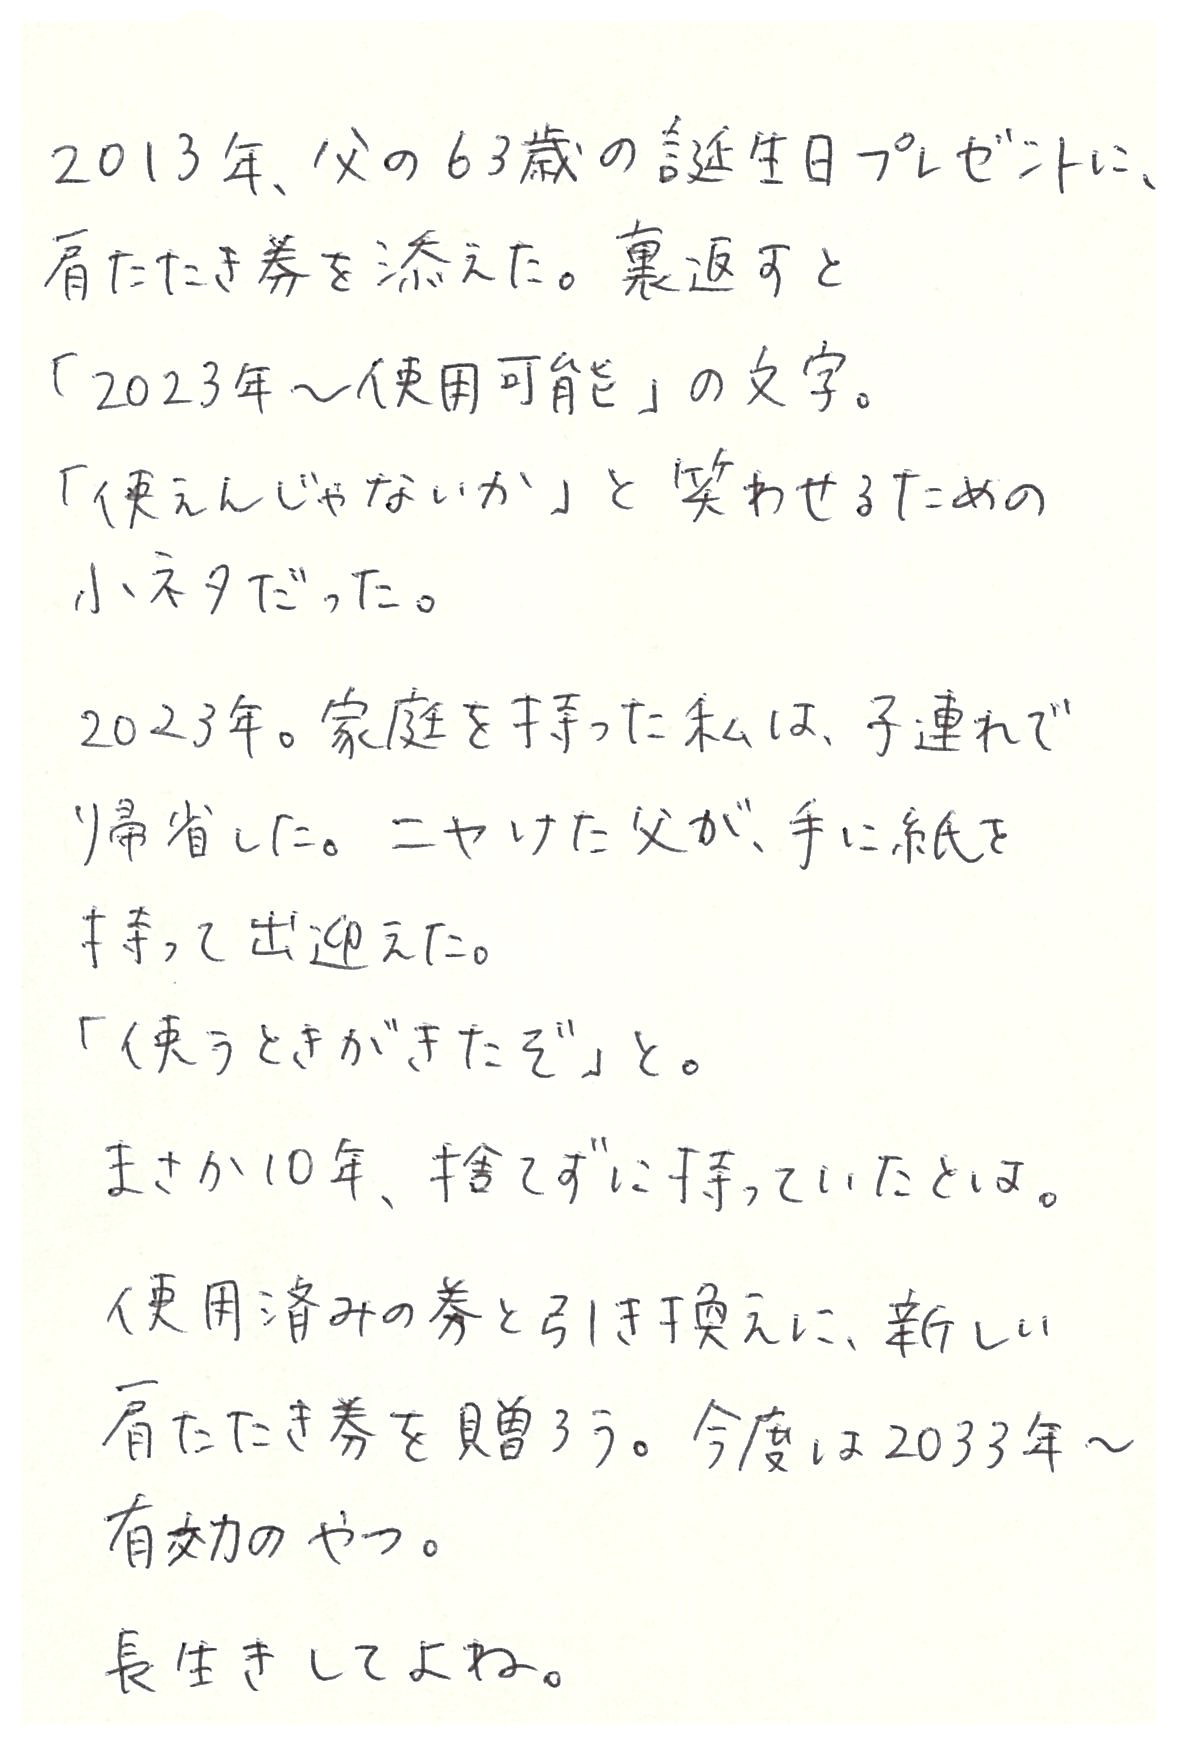 2013年、父の63歳の誕生日プレゼントに、
肩たたき券を添えた。裏返すと
「2023年～使用可能」の文字。
「使えんじゃないか」と笑わせるための
小ネタだった。
2023年。家庭を持った私は、子連れで
帰省した。ニヤけた父が、手に紙を
持って出迎えた。
「使うときがきたぞ」と。
まさか10年、捨てずに持っていたとは。
使用済みの券と引き換えに、新しい
肩たたき券を贈ろう。今度は2033年～
有効のやつ。
長生きしてよね。